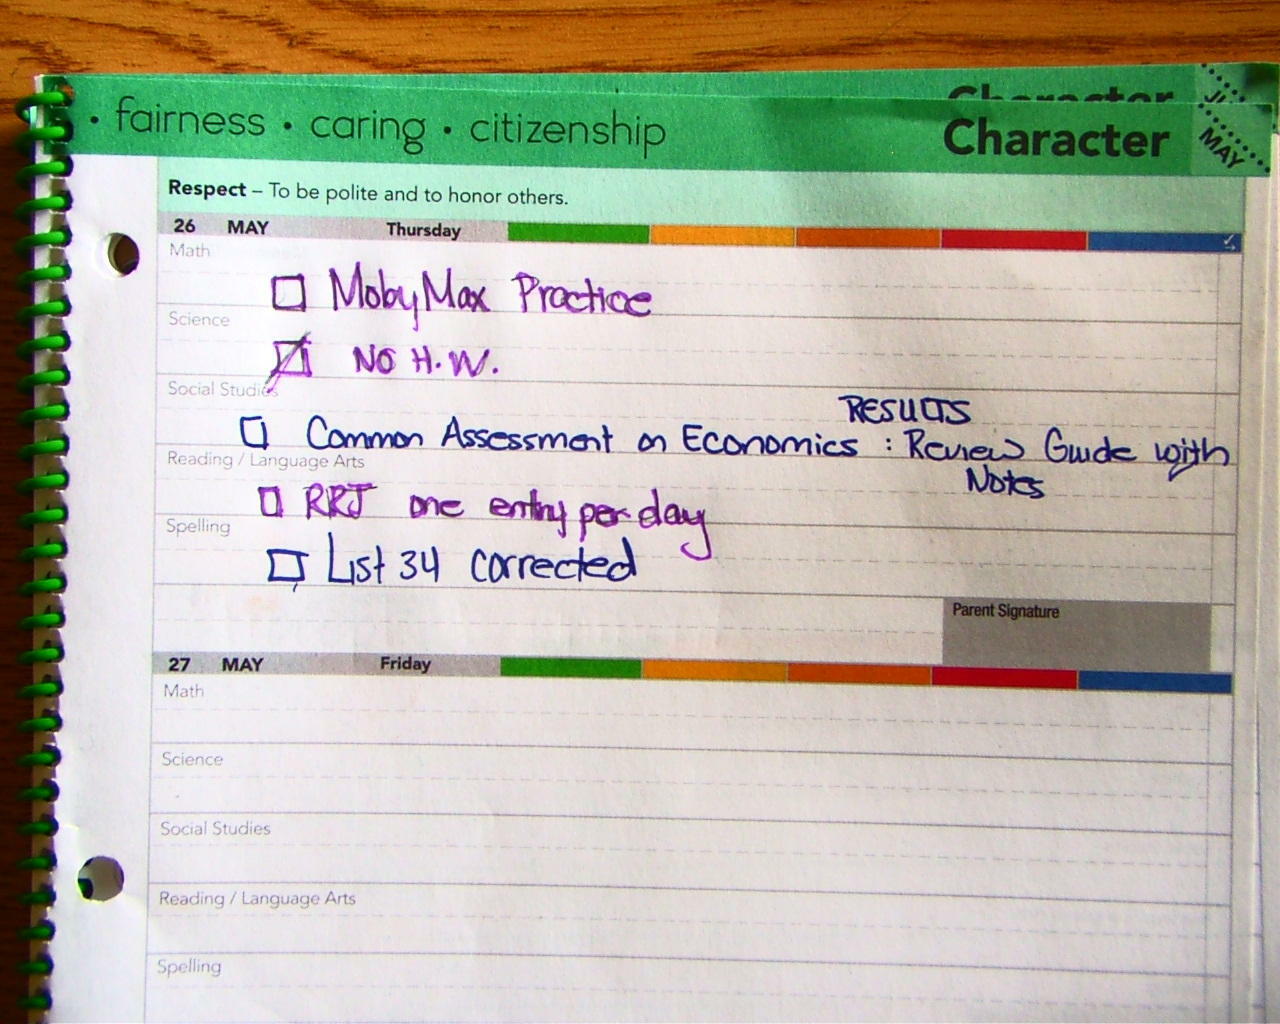 Character
JU
• fairness • caring • citizenship Character MAY
Respect – To be polite and to honor others.
26 MAY Thursday
Math
MobyMax Practice
Science
No H.W.
Social Studies
RESULTS
Common Assessment on Economics : Review Guide with
Notes
Reading / Language Arts
RRJ one entry per day
Spelling
List 34 corrected
Parent Signature
27 MAY Friday
Math
Science
Social Studies
Reading / Language Arts
Spelling